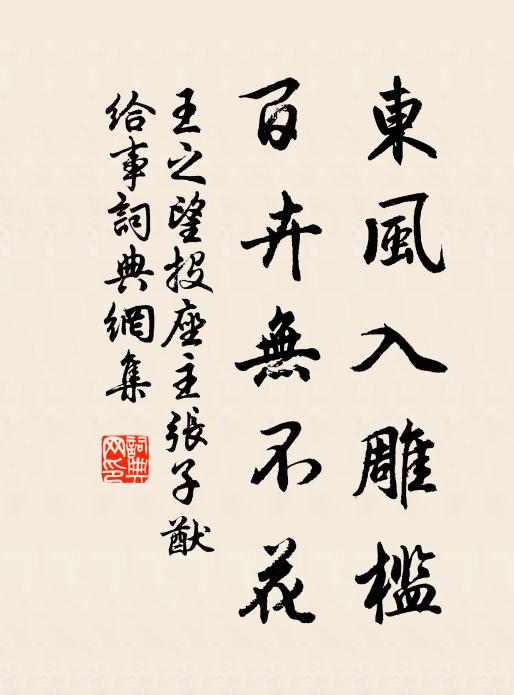 東風入雕檻
百卉無不花
王之望投座主張子猷
給事詞典網集
詞典网印